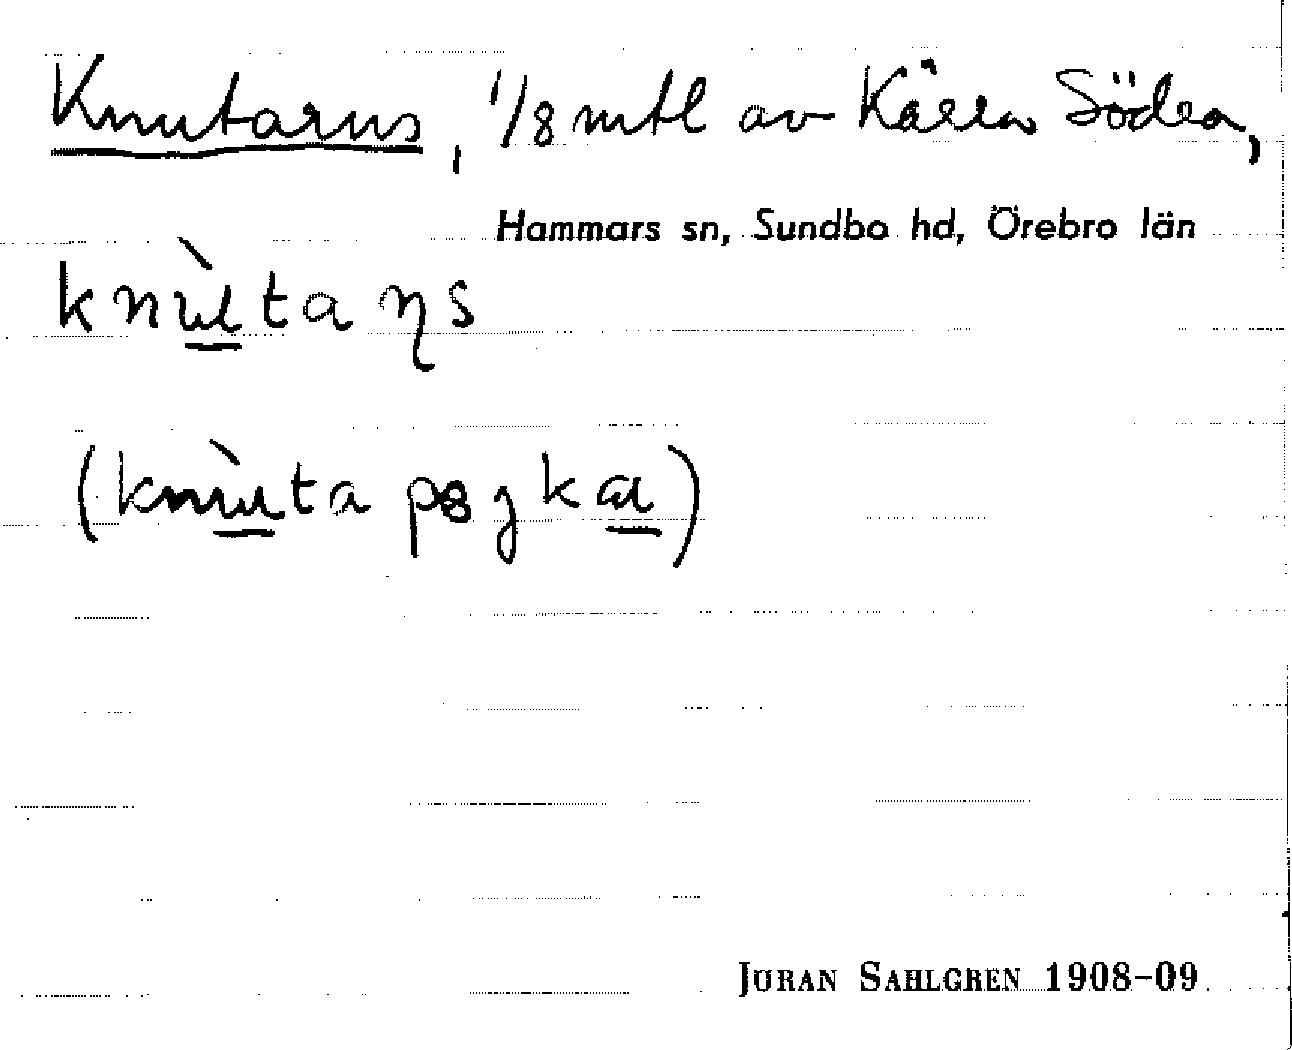 Knutarns, 1/8 mtl av Källa Södra,
Hammars sn, Sundbo hd, Örebro län
knùtaɳs
(knùta pojka)
JÖRAN SAHLGREN 1908–09